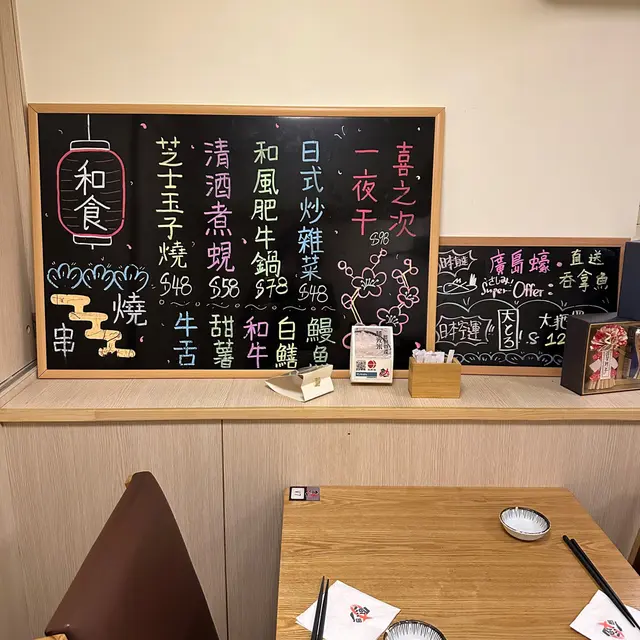 和食
喜之次
一夜干
$98
日式炒雜菜
$48
和風肥牛鍋
$78
清酒煮蜆
$58
芝士玉子燒
$48
串
燒
鰻魚
白鱔
和牛
甜薯
牛舌
廣島蠔
さしみ
Super Offer:
直送
吞拿魚
日本空運
大とろ